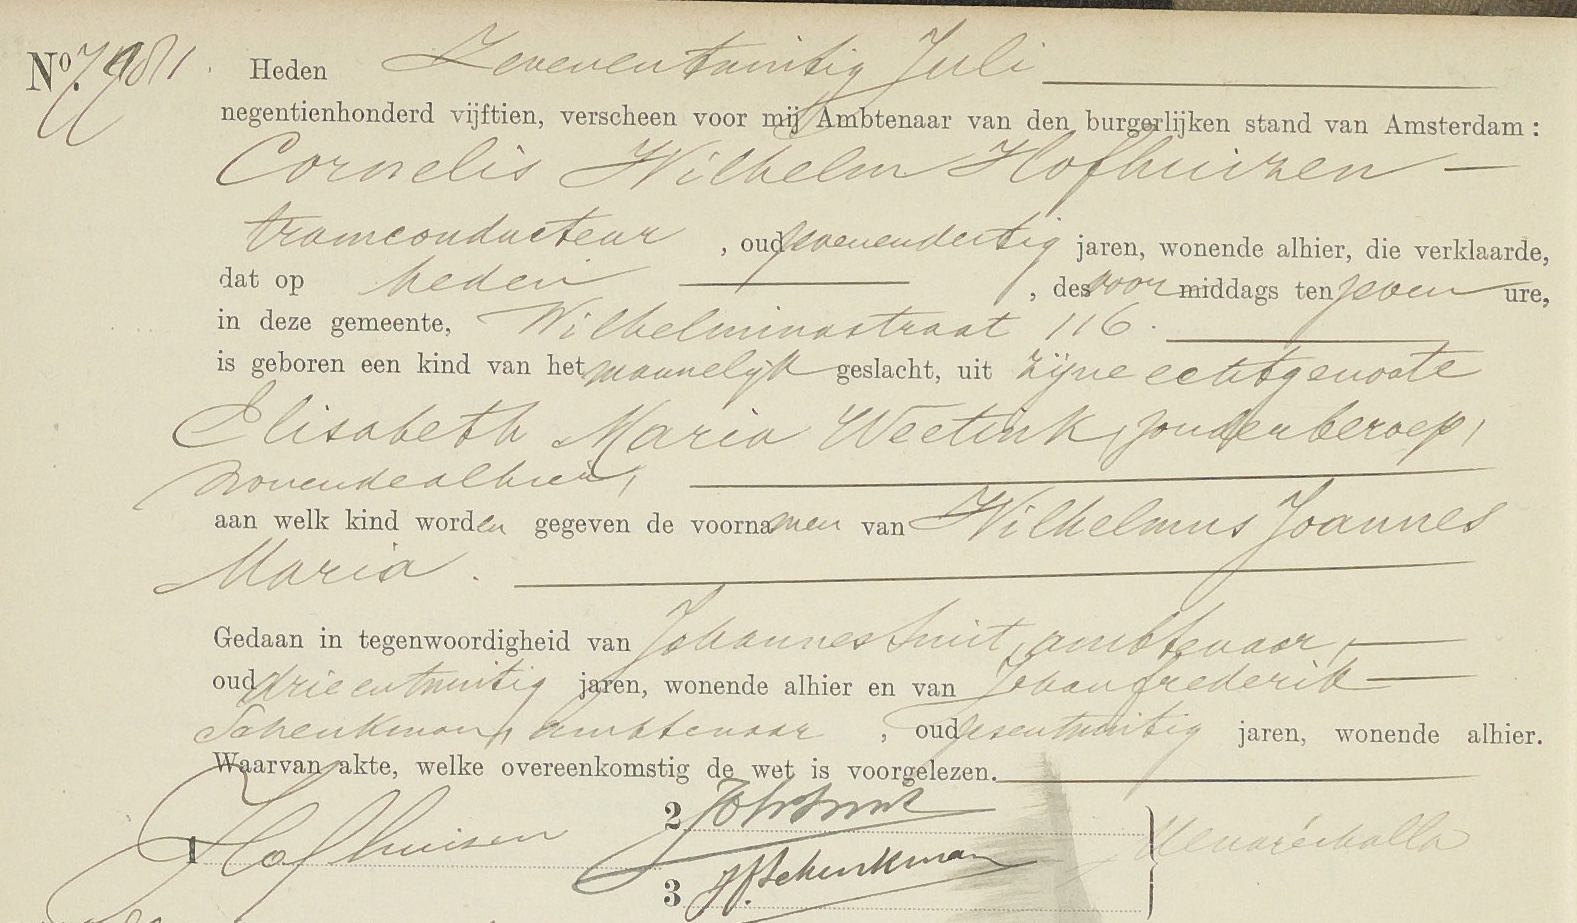 No. 7981 Heden Zevenentwintig Juli
negentienhonderd vijftien, verscheen voor mij Ambtenaar van den burgerlijken stand van Amsterdam:
Cornelis Wilhelm Hofhuizen
tramconducteur, oud zevenendertig jaren, wonende alhier, die verklaarde,
dat op heden, des voor middags ten zeven ure,
in deze gemeente, Wilhelminastraat 116.
is geboren een kind van het mannelijk geslacht, uit zijne echtgenoote
Elisabeth Maria Weetink, zonder beroep,
wonende alhier,
aan welk kind worden gegeven de voornamen van Wilhelmus Joannes
Maria.
Gedaan in tegenwoordigheid van Johannes Smit, ambtenaar,
oud drieentwintig jaren, wonende alhier en van Johan Frederik
Schenkman, ambtenaar, oud zesentwintig jaren, wonende alhier.
Waarvan akte, welke overeenkomstig de wet is voorgelezen.
1 Hofhuizen
2 Joh Smit
3 JF Schenkman